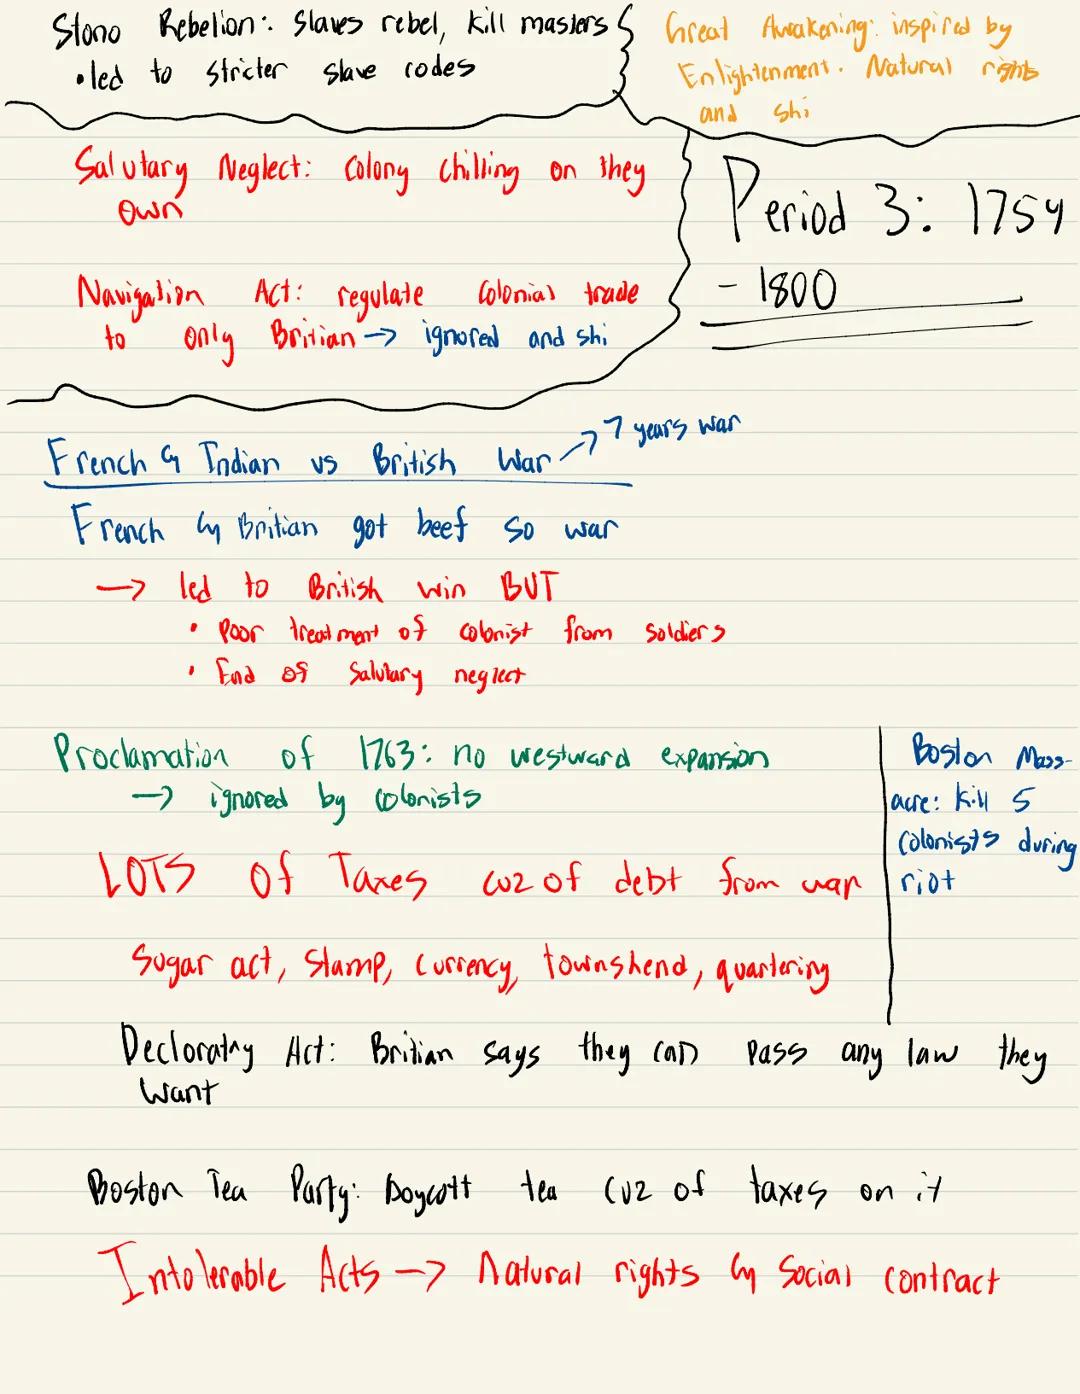 Stono Rebelion: Slaves rebel, kill masters
• led to stricter slave codes
Great Awakening: inspired by
Enlightenment. Natural rights
and shi
Salutary Neglect: Colony chilling on they
own
Navigation Act: regulate Colonial trade
to only Britian → ignored and shi
Period 3: 1754
- 1800
French & Indian vs British War → 7 years war
French & Britian got beef so war
→ led to British win BUT
• Poor treatment of colonist from soldiers
• End of Salutary neglect
Proclamation of 1763: no westward expansion
→ ignored by colonists
Boston Mass-
acre: Kill 5
Colonists during
riot
LOTS of Taxes cuz of debt from war
Sugar act, Stamp, Currency, townshend, quartering
Decloratry Act: Britian says they can pass any law they
want
Boston Tea Party: boycott tea cuz of taxes on it
Intolerable Acts → Natural rights & Social contract